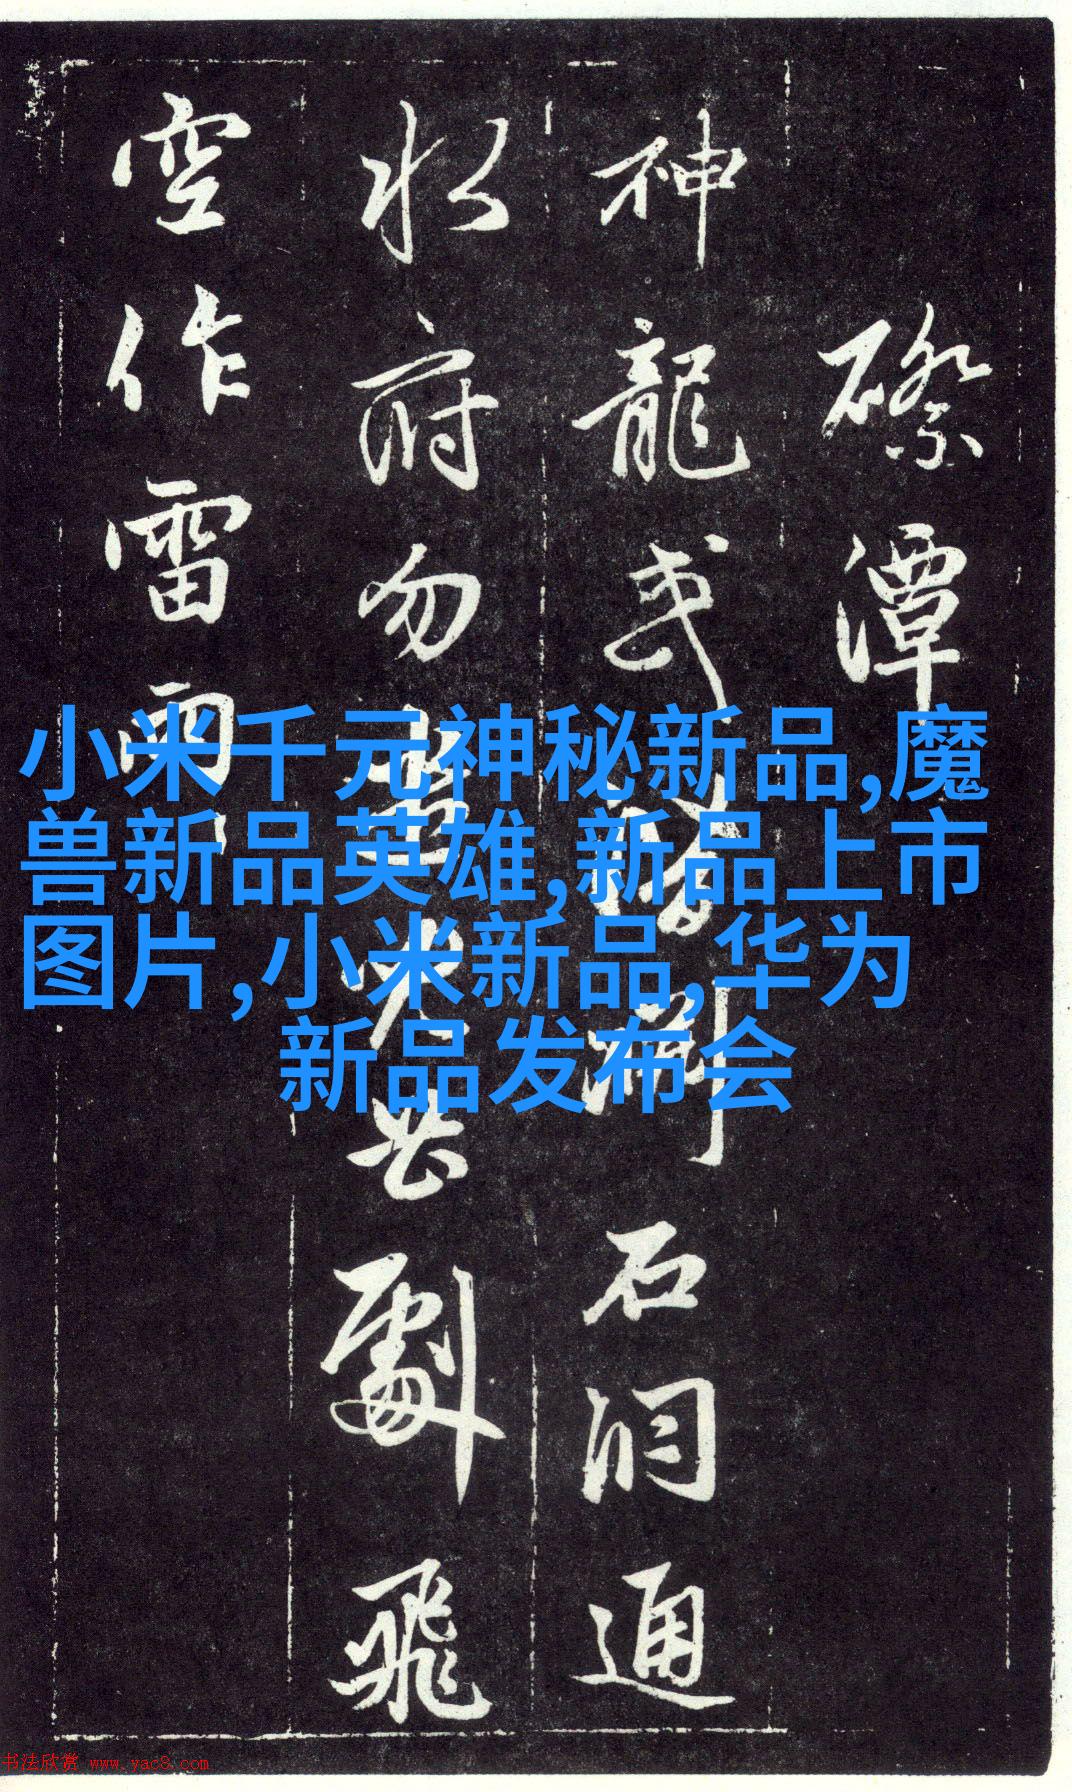 潭
神龍或潛淵石洞通
水府勿劇飛
空作雷雨
小米千元神秘新品,魔
兽新品英雄,新品上市
图片,小米新品,华为
新品发布会
书法欣赏 www.yac8.com